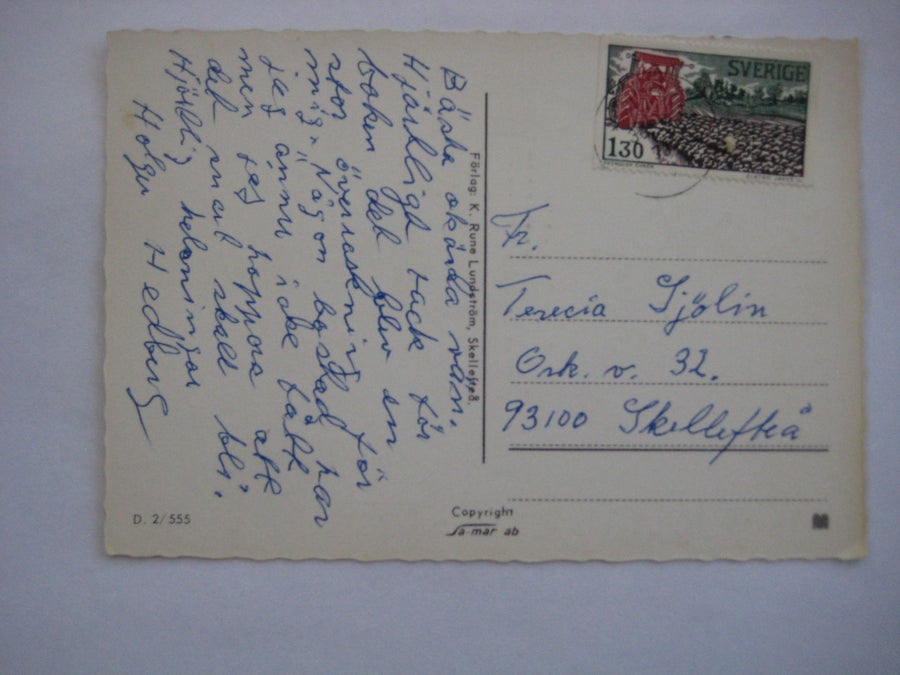 Bästa okända vän.
Hjärtligt tack för
boken Det blev en
stor överraskning för
mig. Någon besked har
jeg ännu icke fått
men jeg hoppas att
det snart skall bli.
Hjärtlig helsningar
Holger Hedberg
Förlag: K. Rune Lundström, Skellefteå.
SVERIGE
130
Fr.
Terecia Sjölin
Ork. v. 32.
93100 Skellefteå
D. 2/555
Copyright
Sa-mar ab